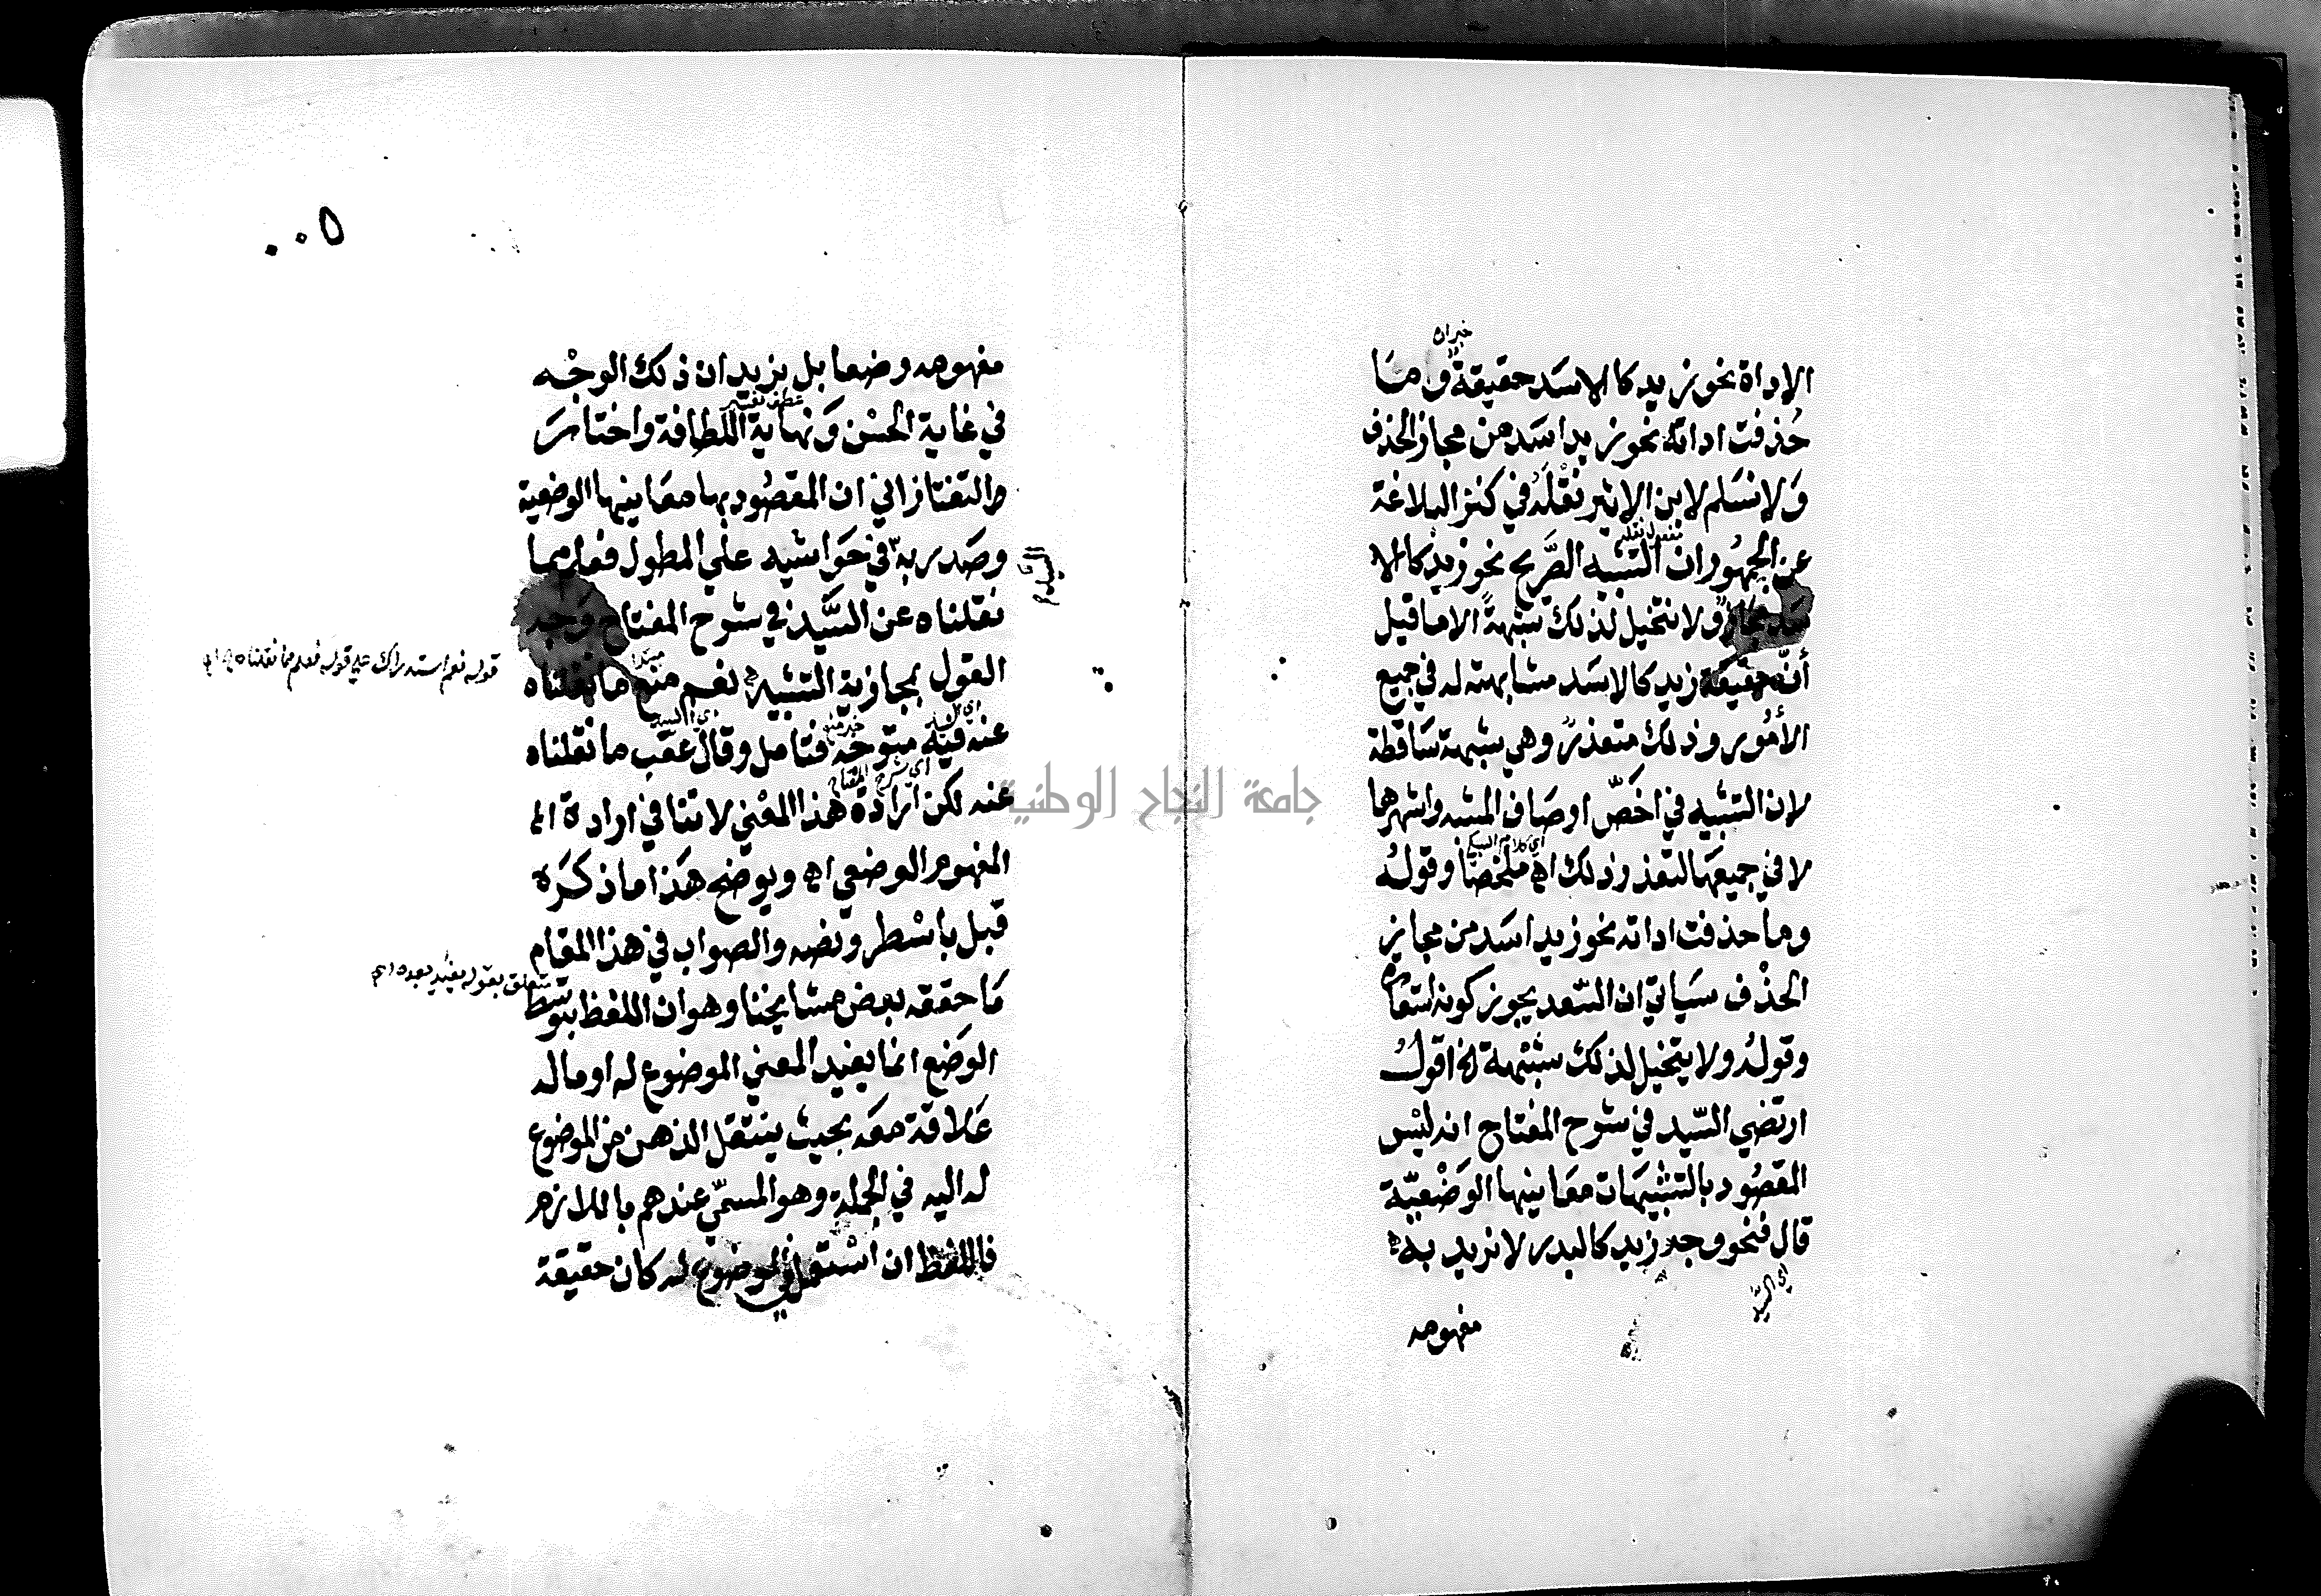 خبران
الاداة نحو زيد كالاسد حقيقة وما
حُذفت اداته نحو زيد اسد من مجاز الحذف
وَلا نسَلم لابن الاثير نقْلَهُ في كنز البلاغة
مفعول نقله
عن الجمهُور ان التشبيه الصَّريح نحو زيد كالا
سَد مجازٌ ولا نتخيل لذلك شبهةً الا ما قيل
أنّ حقيقة زيد كالاسَد مشابهته له في جميع
الأمُور وذلك متعذرٌ وهي شبهة سَاقطة
لان التشبيه في اخَصّ اوصَاف المشبه واشهرها
اي كلام السبكي
لا في جميعهَا لتعذر ذلك اهـ ملخصًا وقولُه
وما حذفت اداته نحو زيد اسَد من مجاز
الحذْف سَياتي ان السَّعد يجوز كونه استعارة
وقولُه ولا يتخيل لذلك شبْهة الخ اقولُ
ارتضي السَّيد في شرح المفتاح انه ليْس
المقصُود بالتشبيهَات معَانيها الوَضْعيَّة
قال فنحو وجه زيد كالبدر لا نريد به
اي السَّيد
مفهومه
٠٠٥
مفهومه وضعا بل نريد ان ذلك الوجْه
عطف تفسير
في غاية الحسْن وَنهاية اللطافة واختارَ
التفتازاني ان المقصُود بها معَانيها الوضعية
وصَدر به في حَواشيه علي المطول فعلم مما
السيد
نقلناه عن السَّيد في شرح المفتاح وَجه
قوله نعم استدراك علي قوله فعلم مما نقلناه
مبتدا
القول بمجازية التشبيه نعم منع ما نقلناه
اي السيد
خبر منع
عنه فيه متوجه فتامل وقال عقب ما نقلناه
اي شرح المفتاح
عنه لكن ارادة هذا المعْني لا تنافي ارادة الم
المفهوم الوضعي اهـ ويوضح هَذا ما ذكرَه
قبل باسْطر ونصه والصواب في هذا المقام
مَا حققه بعض مشايخنا وهو ان اللفظ بتوسط
متعلق بقوله يفيد بعده
الوَضع انما يفيد المعني الموضوع له او ما له
عَلاقة معَه بحيث ينتقل الذهن من الموضوع
له اليه في الجملة وهو المسمّي عندهم باللازم
فاللفظ ان اسْتعمل في الموضوع له كان حقيقة
جامعة النجاح الوطنية